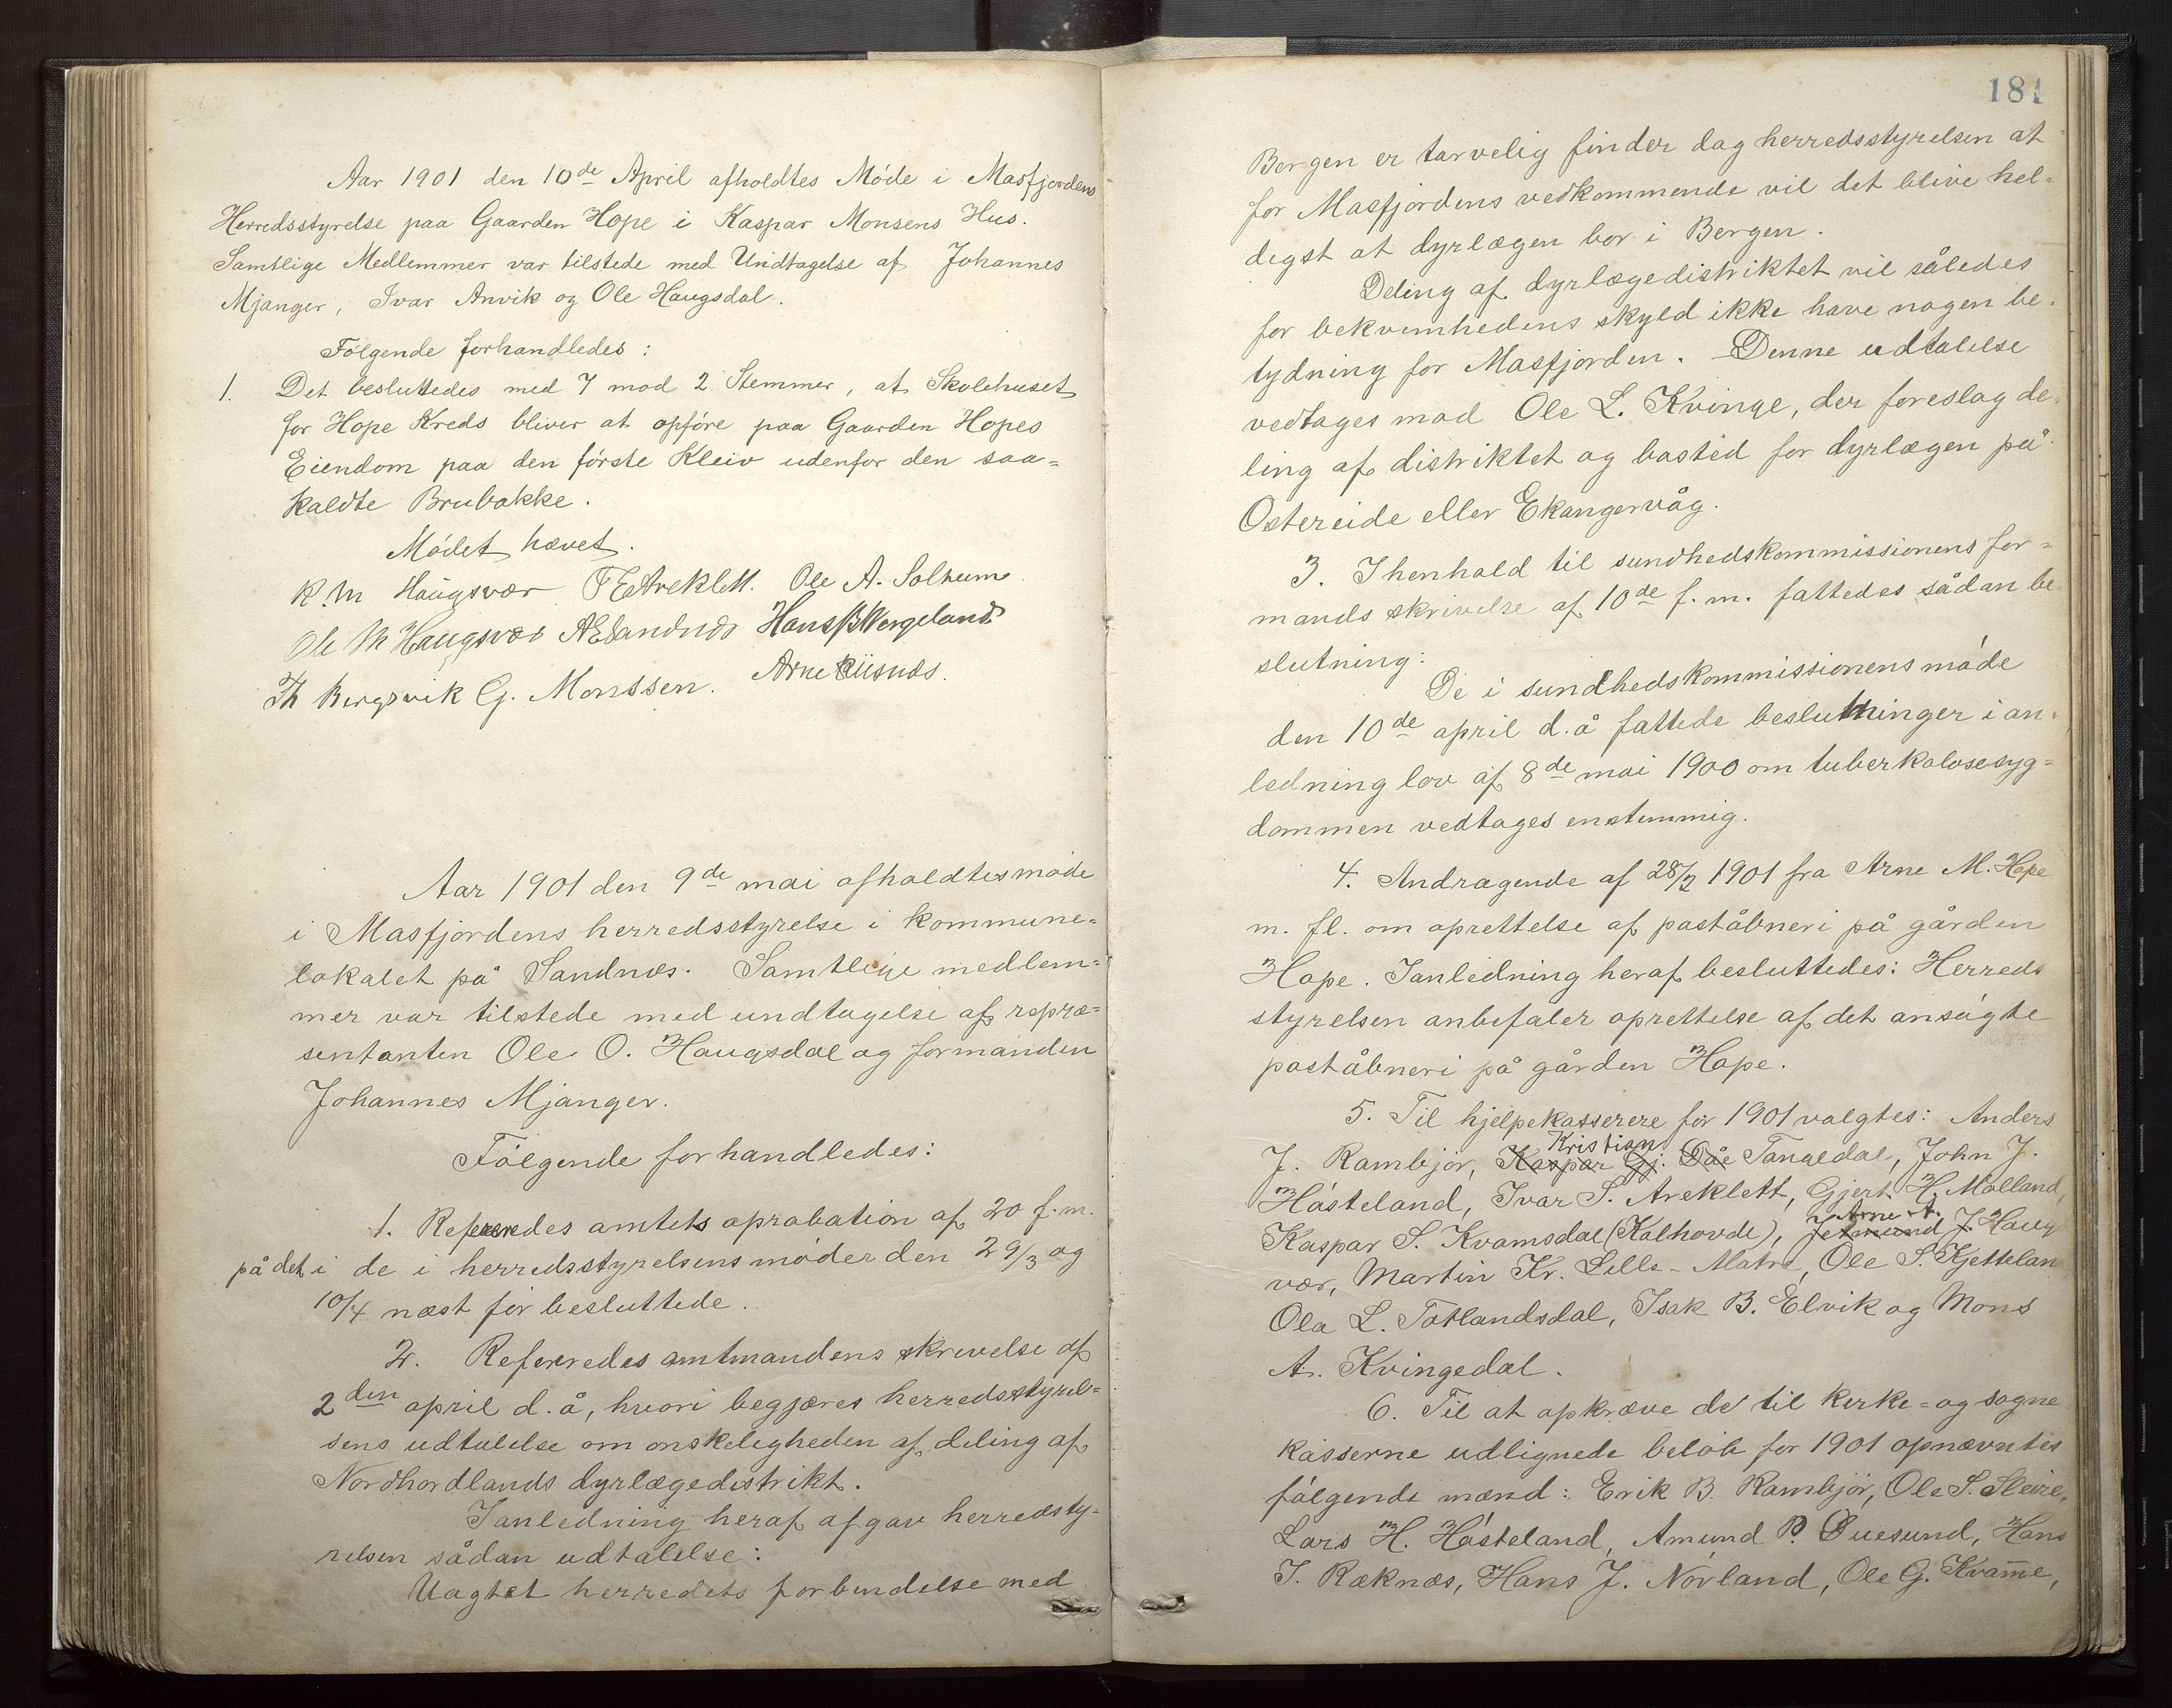 Aar 1901 den 10de April afholdtes Møde i Masfjordens
Herredsstyrelse paa Gaarden Hope i Kaspar Monsens Hus.
Samtlige Medlemmer var tilstede med Undtagelse af Johannes
Mjanger, Ivar Anvik og Ole Haugsdal.
Følgende forhandledes:
1. Det besluttedes med 7 mod 2 Stemmer, at Skolehuset
for Hope Kreds bliver at opføre paa Gaarden Hopes
Eiendom paa den første Kleiv udenfor den saa=
kaldte Brubakke.
Mødet hævet.
K. M Haugsvær Areklett. Ole A. Solheim
Ole M Haugsvær Hans B Vergeland
Th Bergsvik G. Monssen. Arne Riisnæs.
Aar 1901 den 9de mai afholdtes møde
i Masfjordens herredsstyrelse i kommune=
lokalet på Sandnæs. Samtlige medlem=
mer var tilstede med undtagelse af repræ=
sentanten Ole O. Haugsdal og formanden
Johannes Mjanger.
Følgende forhandledes:
1. Refereredes amtets aprobation af 20 f.m.
på det i de i herredsstyrelsens møder den 29/3 og
10/4 næst før besluttede.
2. Refereredes amtmandens skrivelse af
2den april d.å, hvori begjæres herredsstyrel=
sens udtalelse om ønskeligheden af deling af
Nordhordlands dyrlægedistrikt.
I anledning heraf afgav herredsty=
relsen sådan udtalelse:
Uagtet herredets forbindelse med
181
Bergen er tarvelig finder dog herredsstyrelsen at
for Masfjordens vedkommende vil det blive hel=
digst at dyrlægen bor i Bergen.
Deling af dyrlægedistriktet vil således
for bekvemhedens skyld ikke have nogen be=
tydning for Masfjorden. Denne udtalelse
vedtages mod Ole L. Kvinge, der foreslog de=
ling af distriktet og bosted for dyrlægen på
Ostereide eller Ekangervåg.
3. I henhold til sundhedskommissionens for=
mands skrivelse af 10de f.m. fattedes sådan be
slutning:
De i sundhedskommissionens møde
den 10de april d.å fattede beslutninger i an=
ledning lov af 8de mai 1900 om tuberkolosesyg=
dommen vedtages enstemmig.
4. Andragende af 28/3 1901 fra Arne M. Hope
m. fl. om oprettelse af poståbneri på gården
Hope. I anledning heraf besluttedes: Herreds
styrelsen anbefaler oprettelse af det ansøgte
poståbneri på gården Hope.
5. Til hjelpekasserere for 1901 valgtes: Anders
Kristian
J. Rambjør, Kaspar Gj. Dåe Tangedal, John J.
Håsteland, Ivar S. Areklett, Gjert H. Molland,
Arne A.
Kaspar S. Kvamsdal (Kalhovde), Jetmund J. Haug
vær, Martin Kr. Lille-Matre, Ole S. Kjetteland
Ola L. Totlandsdal, Isak B. Elvik og Mons
A. Kvingedal.
6. Til at opkræve de til kirke= og sogne
kasserne udlignede beløb for 1901 opnævntes
følgende mænd: Erik B. Rambjør, Ole S. Sleire,
Lars H. Håsteland, Amund P. Duesund, Hans
I. Ræknæs, Hans J. Nørland, Ole G. Kvamme,